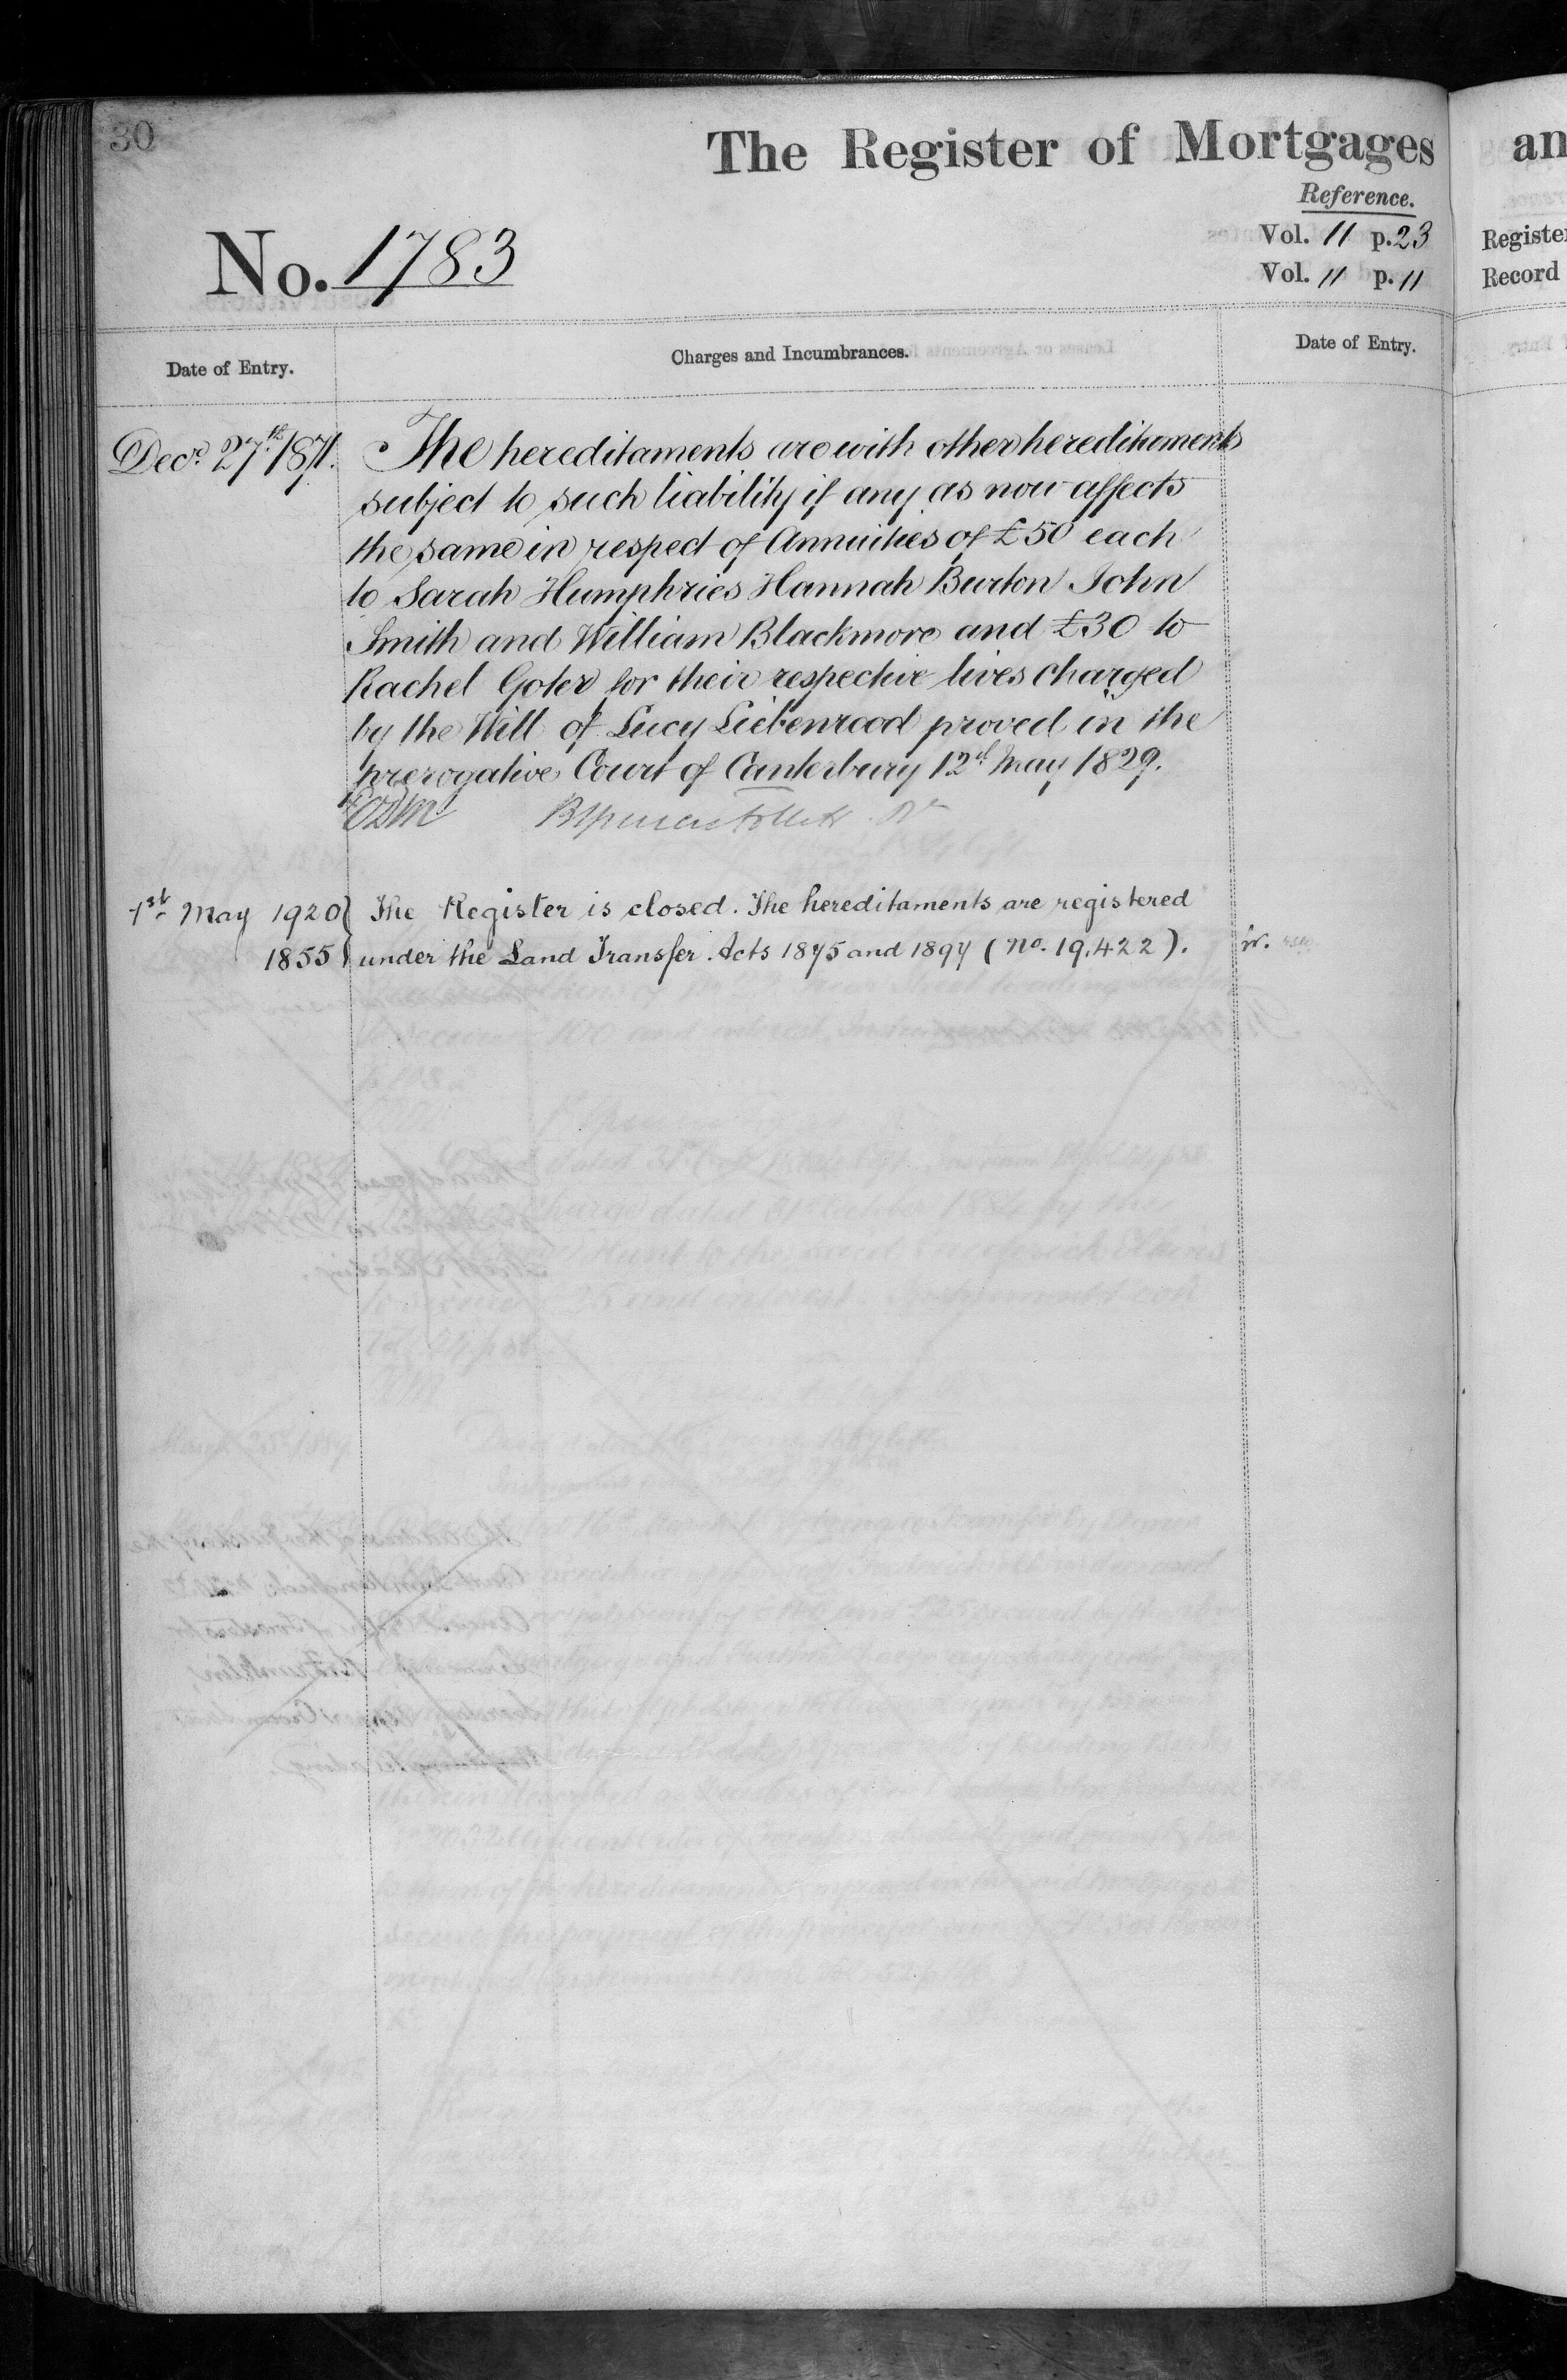 30
The Register of Mortgages
an
Reference.
No. 1783
Vol. 11 p. 23
Register
Vol. 11 p. 11
Record
Date of Entry.
Charges and Incumbrances.
Date of Entry.
Decr. 27th 1871. The hereditaments are with other hereditaments
subject to such liability if any as now affects
the same in respect of Annuities of £50 each
to Sarah Humphries Hannah Burton John
Smith and William Blackmore and £30 to
Rachel Goter for their respective lives charged
by the Will of Lucy Liebenrood proved in the
prerogative Court of Canterbury 12th May 1829.
1st May 1920 The Register is closed. The hereditaments are registered
1855 under the Land Transfer Acts 1875 and 1897 (No. 19,422).